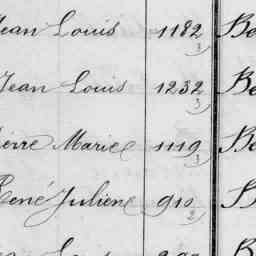 Jean Louis 1182 3 Be
Jean Louis 1232 3 Be
Pierre Marie 1119 3 Be
René Julien 910 2 B